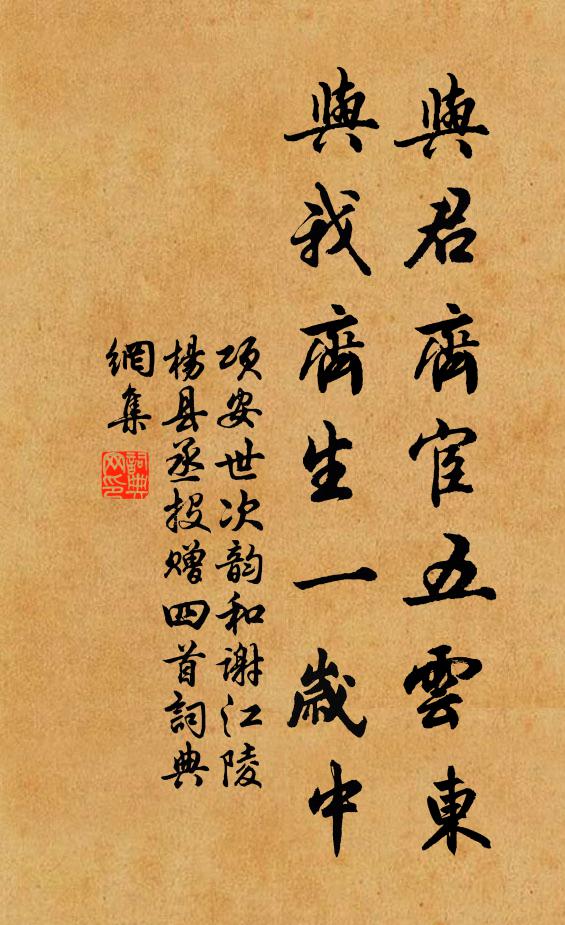 與君齊宦五雲東
與我齊生一歲中
項安世次韵和谢江陵
楊县丞投赠四首詞典
網集
詞典
网印